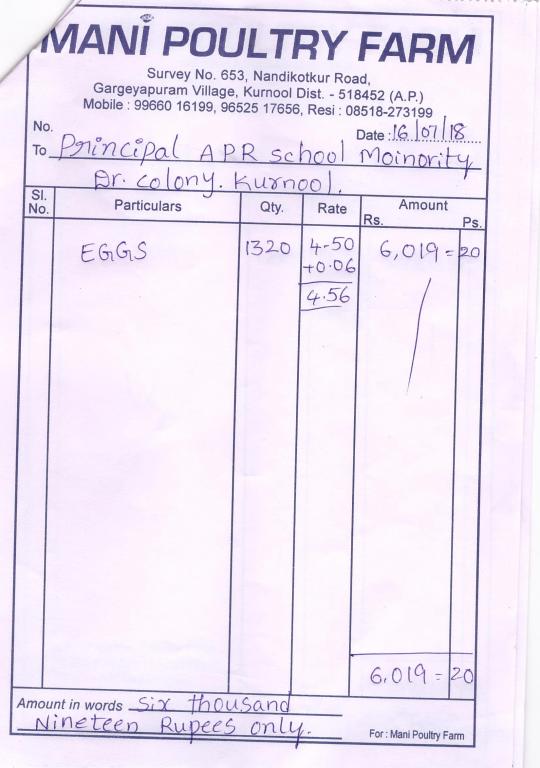 MANI POULTRY FARM
Survey No. 653, Nandikotkur Road,
Gargeyapuram Village, Kurnool Dist. - 518452 (A.P.)
Mobile : 99660 16199, 96525 17656, Resi : 08518-273199
No.
Date : 16/07/18
To Principal APR school Moinority
Dr. colony. Kurnool.
Sl. No. Particulars Qty. Rate Amount Rs. Ps.
EGGS 1320 4-50 6,019 = 20
+0.06
4.56
6,019 = 20
Amount in words Six thousand
Nineteen Rupees only.
For : Mani Poultry Farm